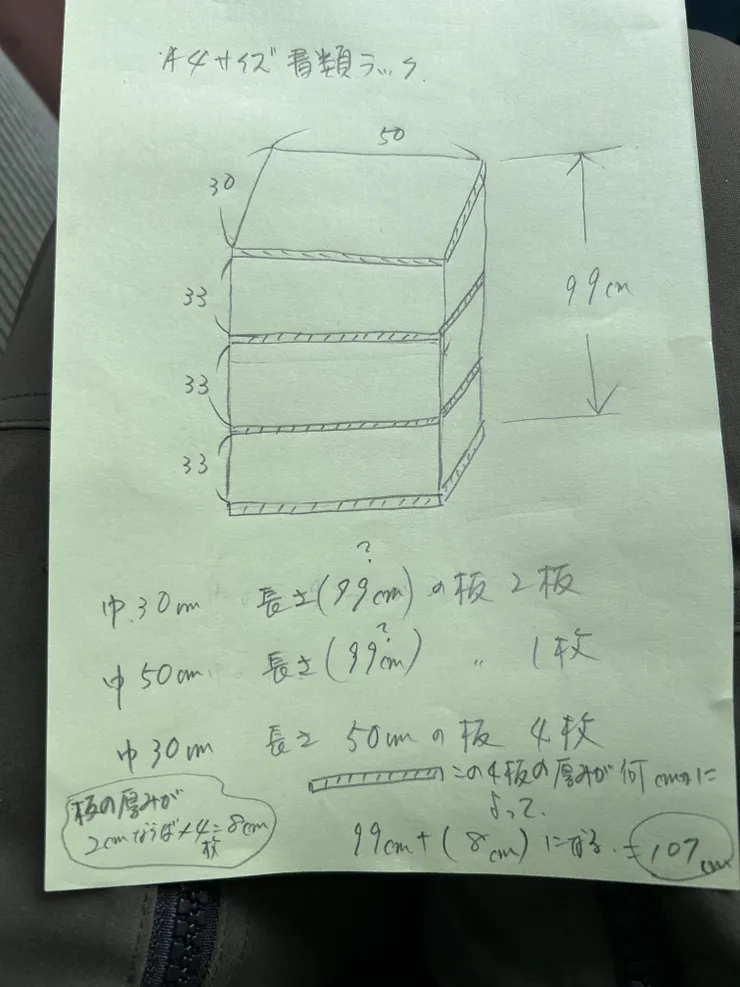 A4サイズ書類ラック
50
30
33
33
33
99cm
?
巾30cm 長さ(99cm)の板2板
?
巾50cm 長さ(99cm) 〃 1枚
巾30cm 長さ50cmの板4枚
この4板の厚みが何cmかに
よって、
99cm+(8cm)になる.=107cm
板の厚みが
2cmならば×4=8cm
枚